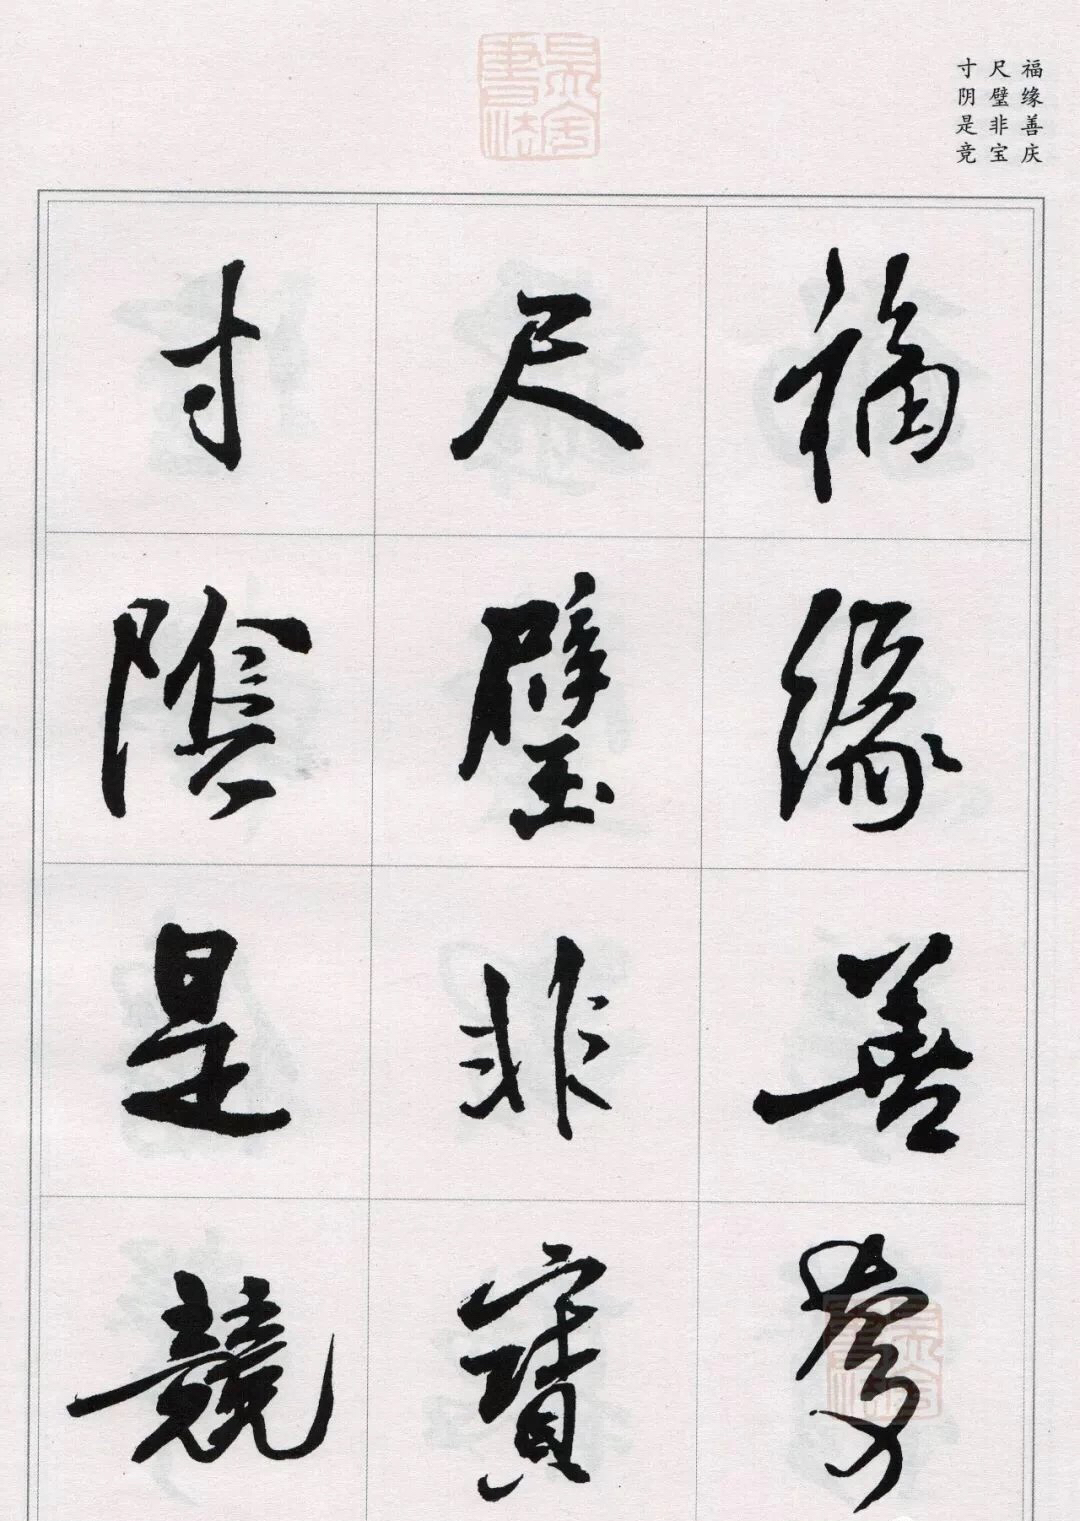 福缘善庆
尺璧非宝
寸阴是竞
福緣善慶
尺璧非寶
寸陰是競